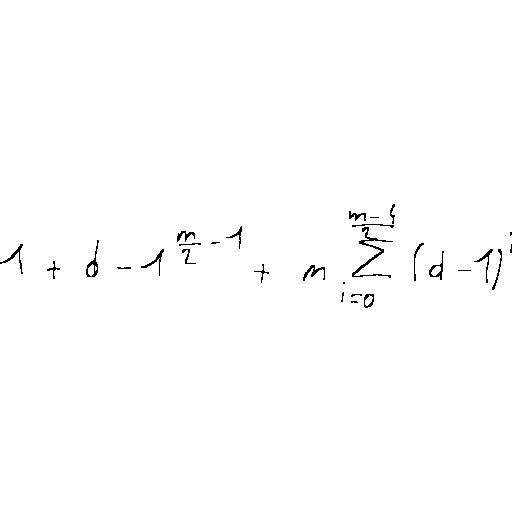 1 + d - 1^{\frac{m}{2} - 1} + n \sum_{i=0}^{\frac{m-4}{2}} (d-1)^i